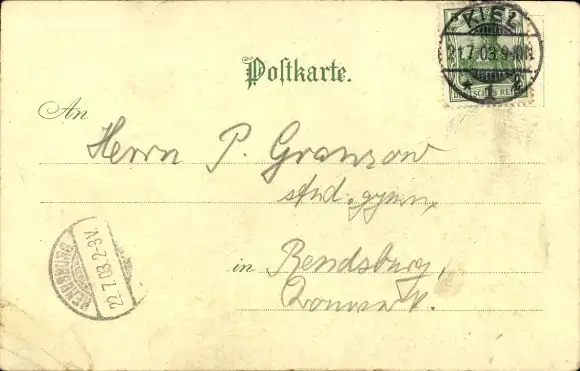 KIEL
21.7.03.9-10N
DEUTSCHES REICH
Postkarte.
An
Herrn P. Gransow
stud. gymn.
in Rendsburg,
RENDSBURG
22.7.03.2-3V.